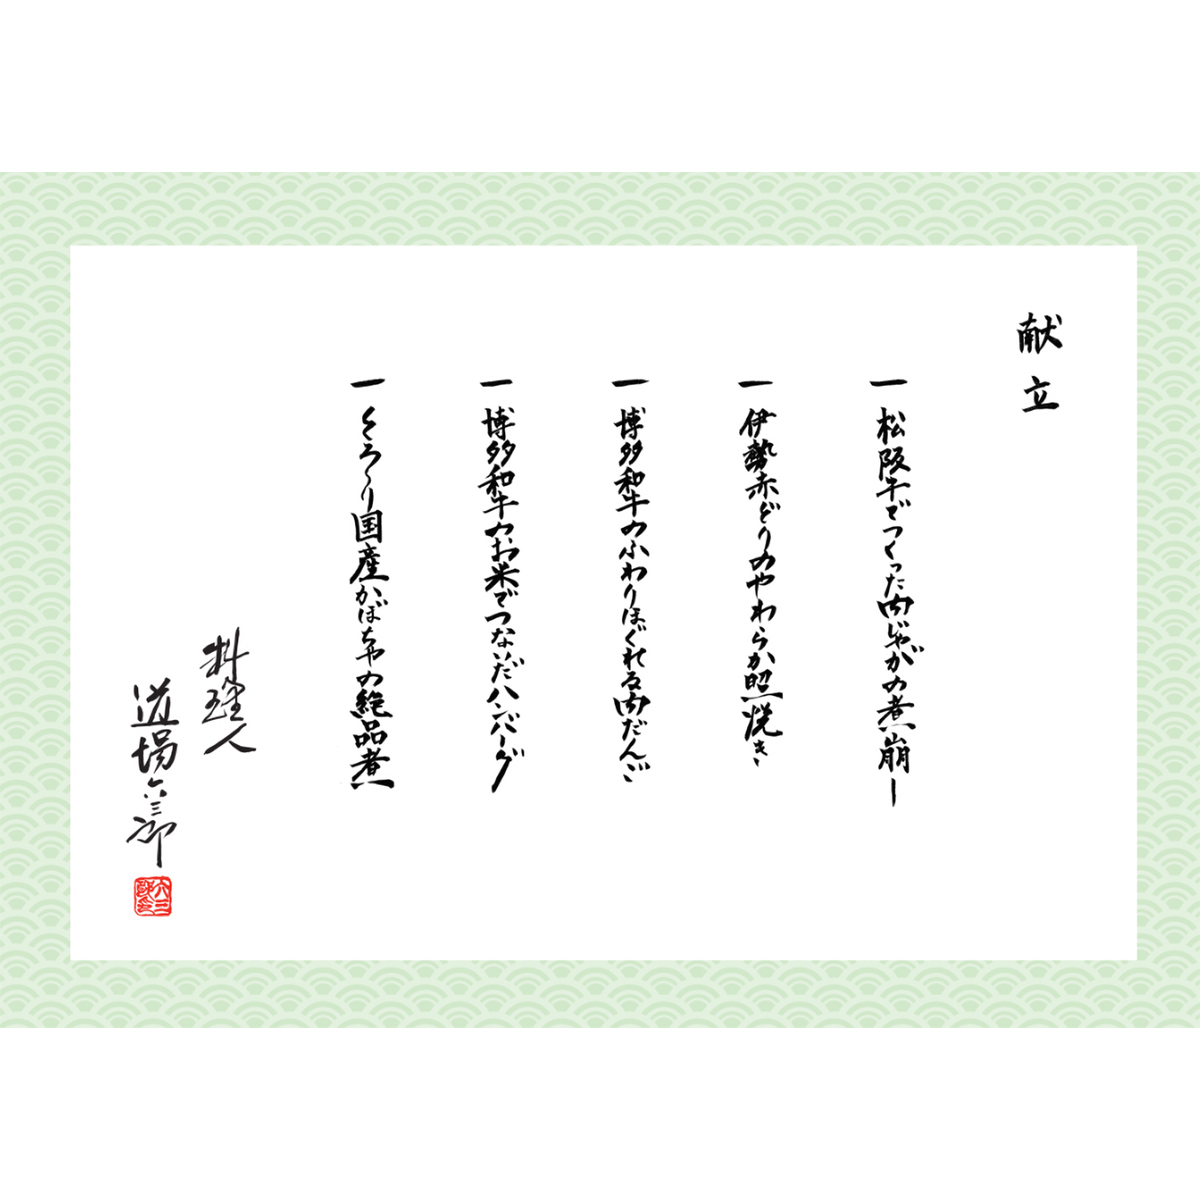 献立
一 松阪牛でつくった肉じゃがの煮崩し
一 伊勢赤どりのやわらか照焼き
一 博多和牛のふわりほぐれる肉だんご
一 博多和牛のお米でつないだハンバーグ
一 とろ〜り国産かぼちゃの絶品煮
料理人
道場六三郎